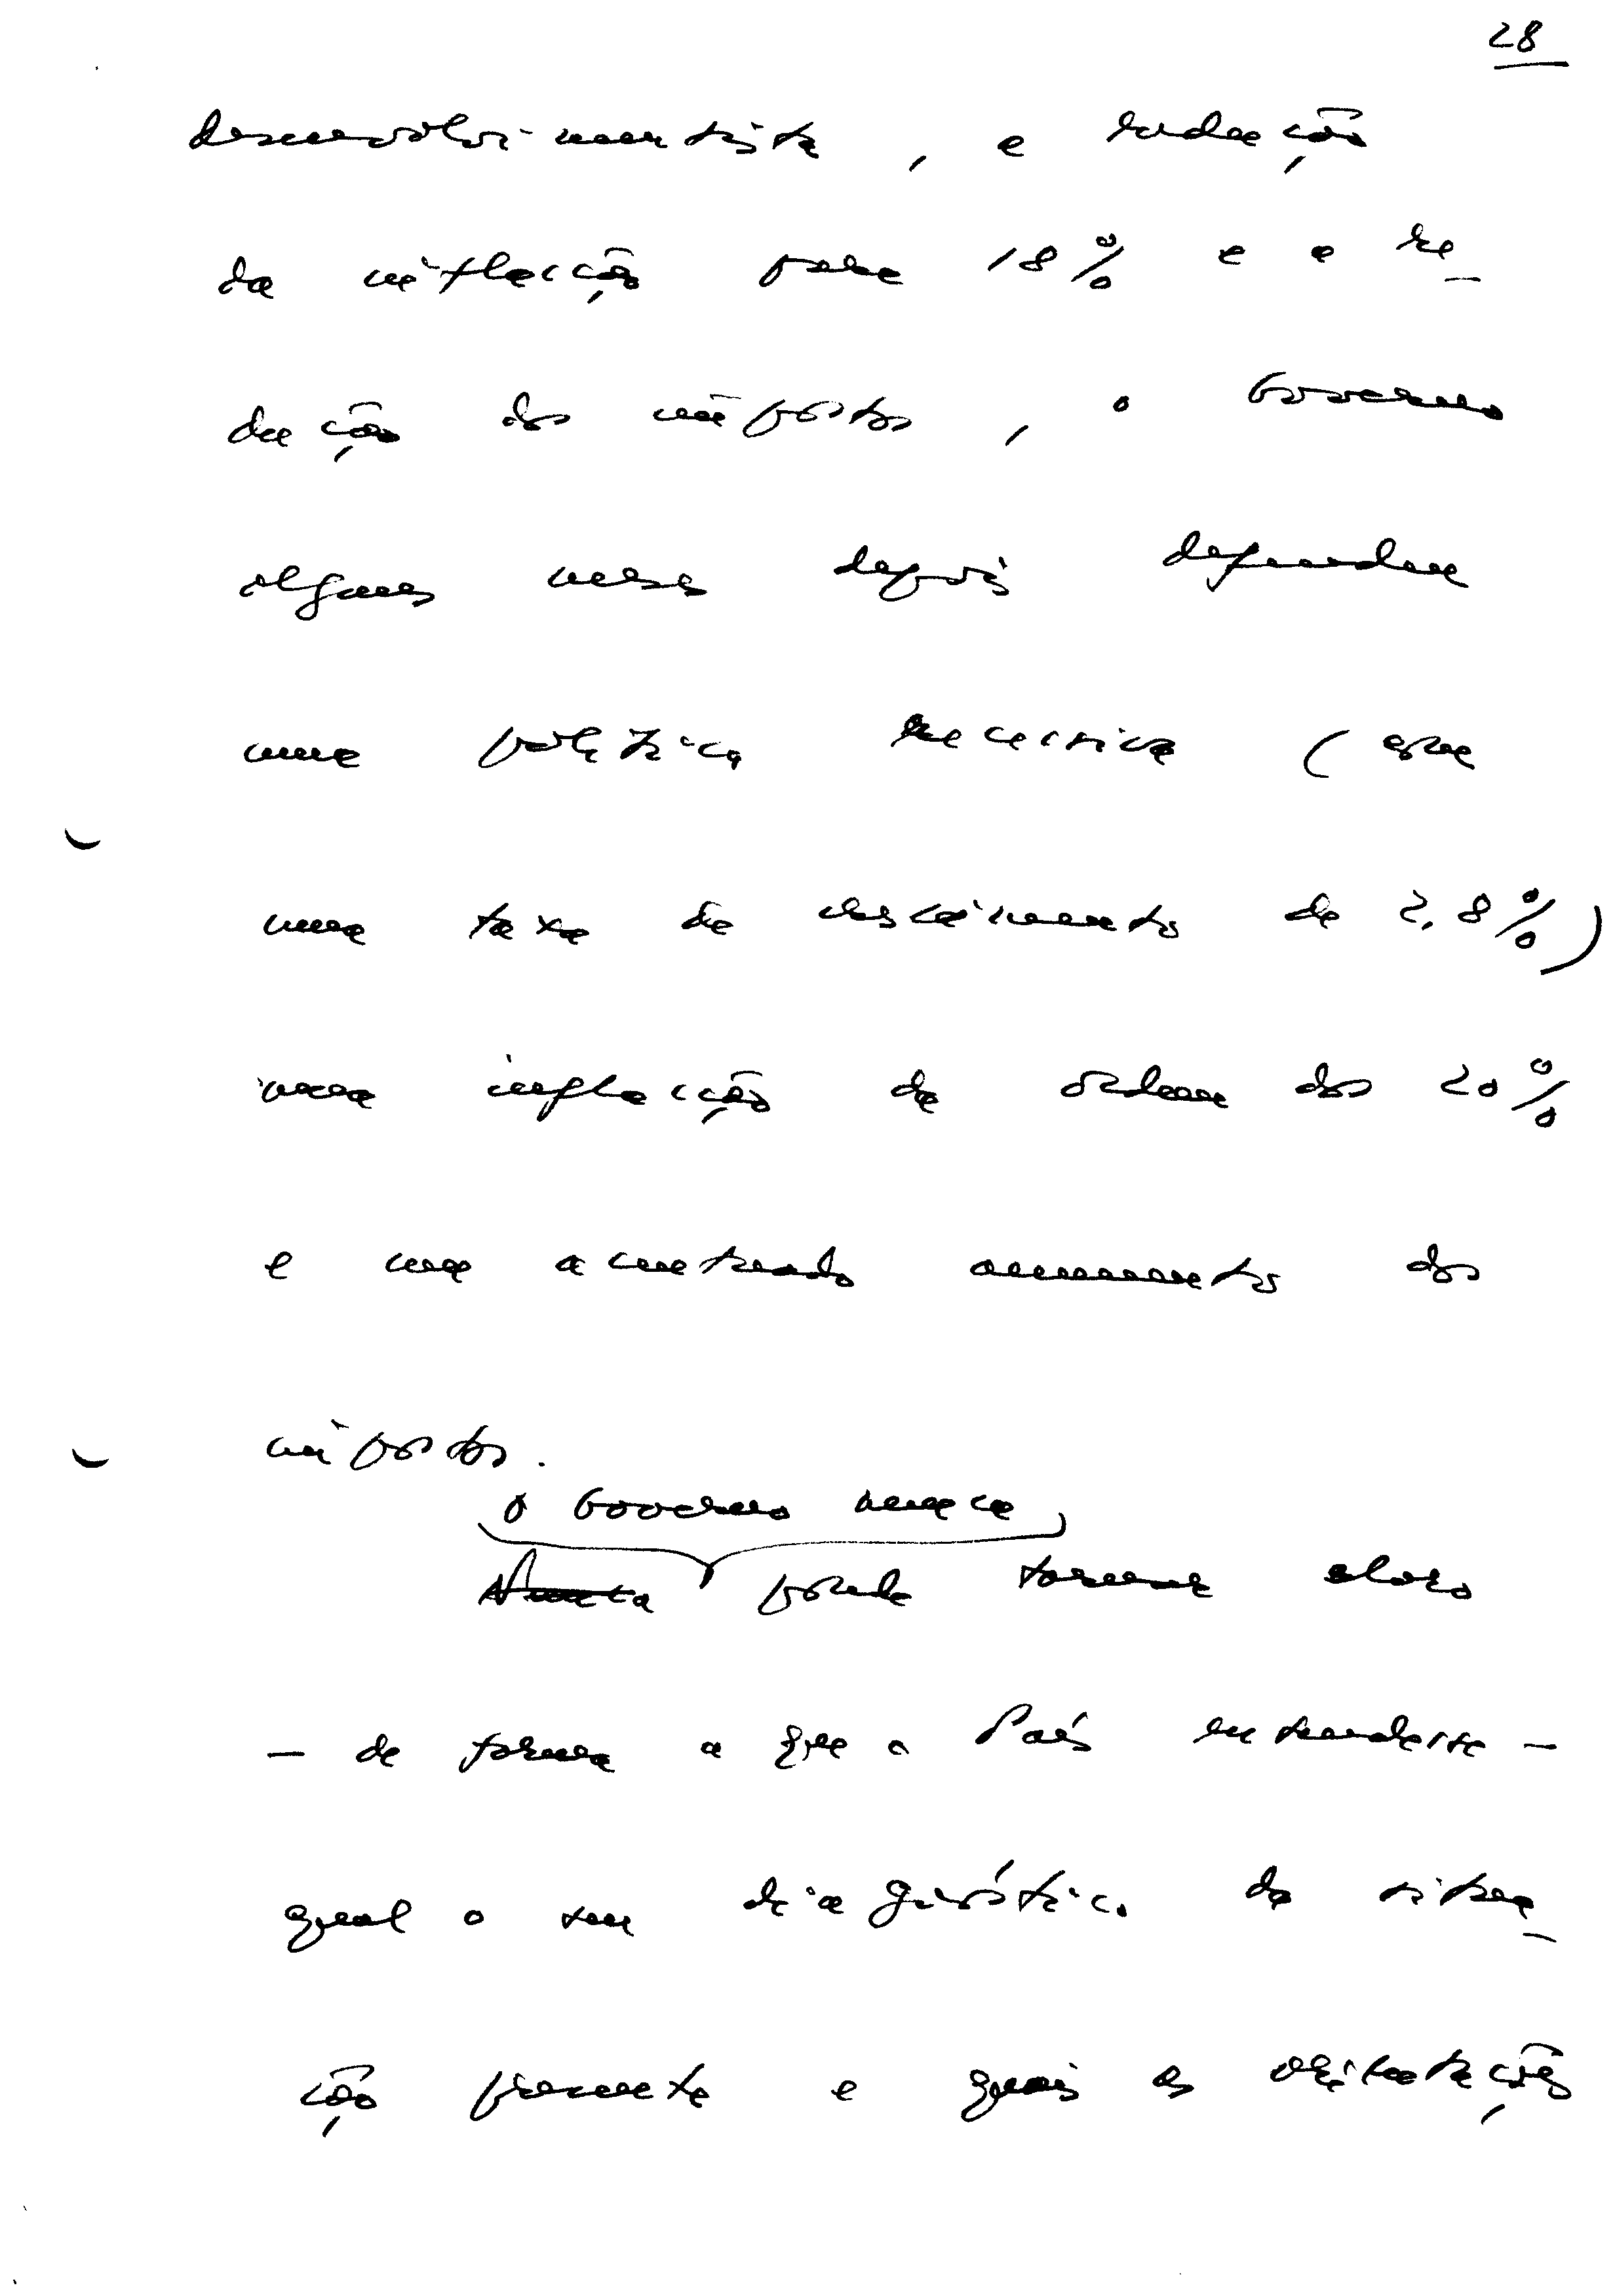 28
desenvolvimentista, a redução
da inflacção para 18% e a re_
dução dos impostos, o Governo
alguns meses depois defendeu
uma política recessiva (com
uma taxa de crescimento de 2.8%)
uma inflacção da ordem dos 20%
e um acentuado aumento dos
impostos.
o Governo nunca
Nunca pôde tornar claro
— de forma a que o País entendesse —
qual o seu diagnóstico da situa_
ção presente e quais as orientações